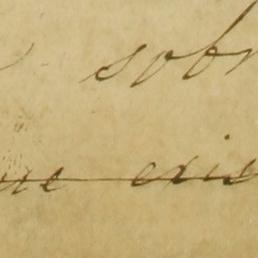 sobr
ue exis